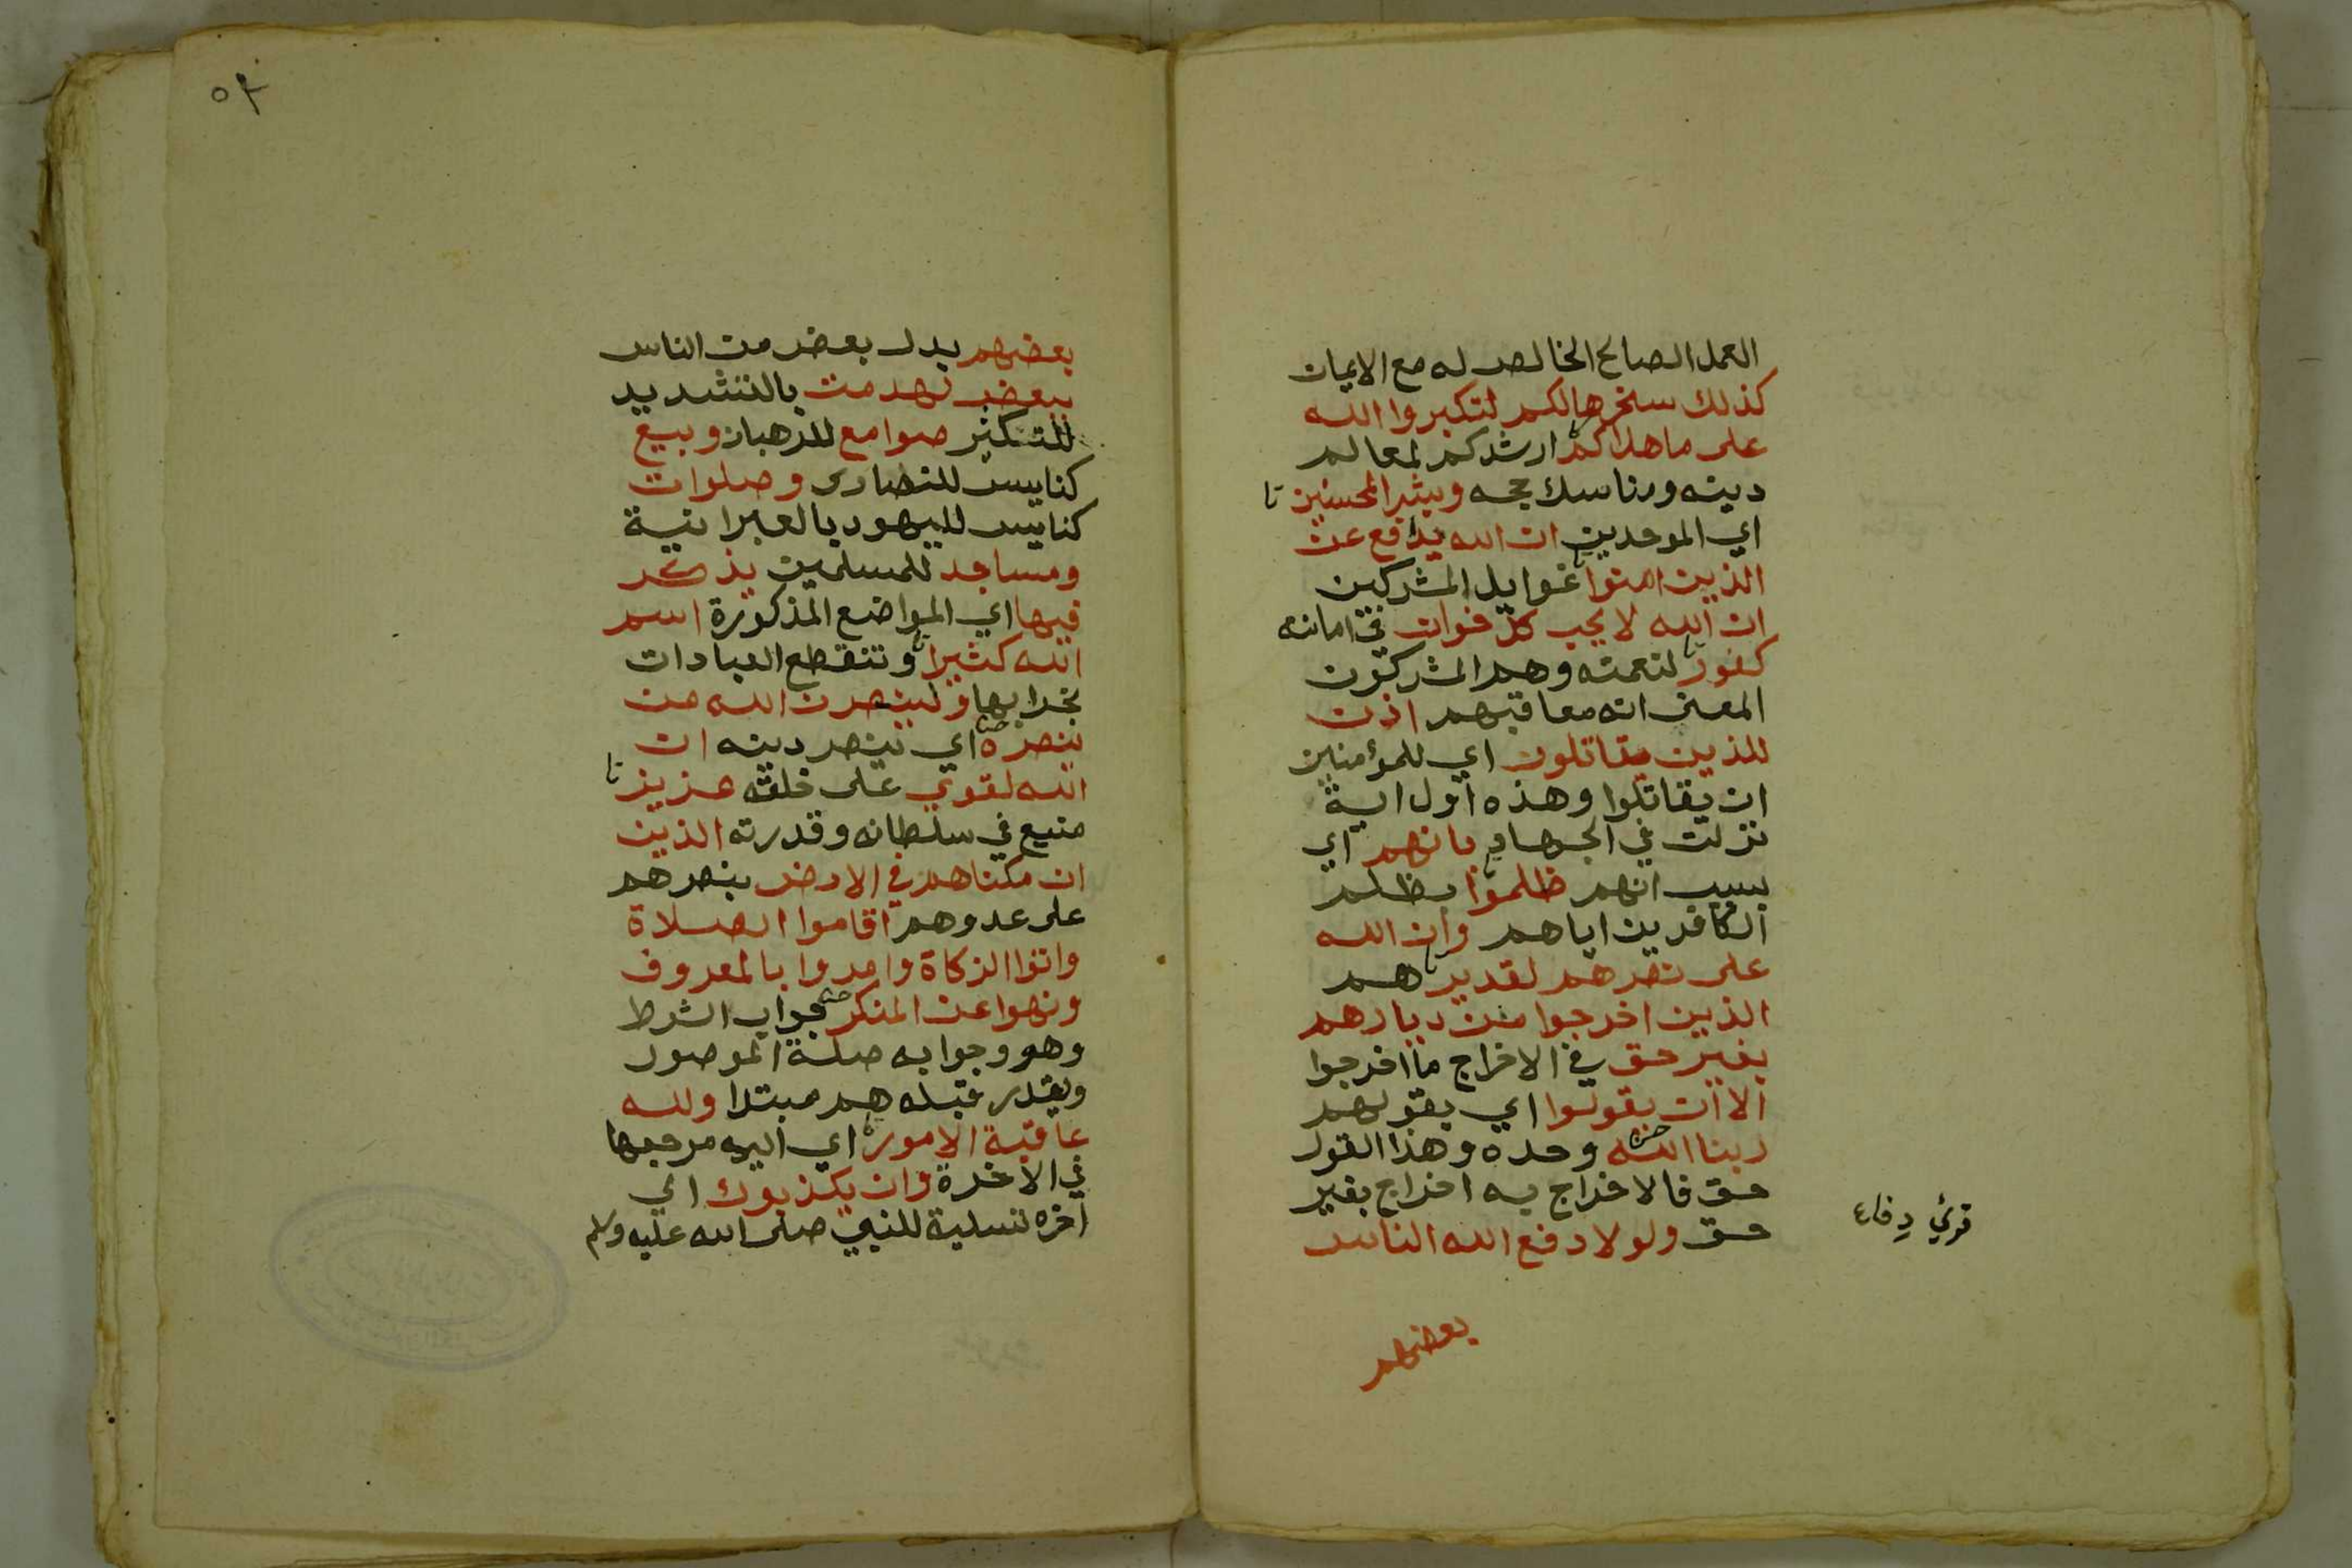 العمل الصالح الخالص له مع الايمان
كذلك سخرها لكم لتكبروا الله
على ما هداكم ارشدكم لمعالم
دينه ومناسك حجه وبشر المحسنين
اي الموحدين ان الله يدافع عن
الذين امنوا غوايل المشركين
ان الله لا يحب كل خوان في امانته
كفور لنعمته وهم المشركون
المعنى انه معاقبهم اذن
للذين يقاتلون اي للمؤمنين
ان يقاتلوا وهذه اول اية
نزلت في الجهاد بانهم اي
بسبب انهم ظلموا بظلم
الكافرين اياهم وان الله
على نصرهم لقدير هم
الذين اخرجوا من ديارهم
بغير حق في الاخراج ما اخرجوا
الا ان يقولوا اي بقولهم
ربنا الله وحده وهذا القول
حق فالاخراج به اخراج بغير
حق ولولا دفع الله الناس
قرئ دِفاع
بعضهم
٥٢
بعضهم بدل بعض من الناس
ببعض لهدمت بالتشديد
للتكثير صوامع للرهبان وبيع
كنايس للنصارى وصلوات
كنايس لليهود بالعبرانية
ومساجد للمسلمين يذكر
فيها اي المواضع المذكورة اسم
الله كثيرا وتنقطع العبادات
بخرابها ولينصرن الله من
ينصره اي ينصر دينه ان
الله لقوي على خلقه عزيز
منيع في سلطانه وقدرته الذين
ان مكناهم في الارض بنصرهم
على عدوهم اقاموا الصلاة
واتوا الزكاة وامروا بالمعروف
ونهوا عن المنكر جواب الشرط
وهو وجوابه صلة الموصول
ويقدر قبله هم مبتدا ولله
عاقبة الامور اي اليه مرجعها
في الاخرة وان يكذبوك الى
اخره تسلية للنبي صلى الله عليه وسلم